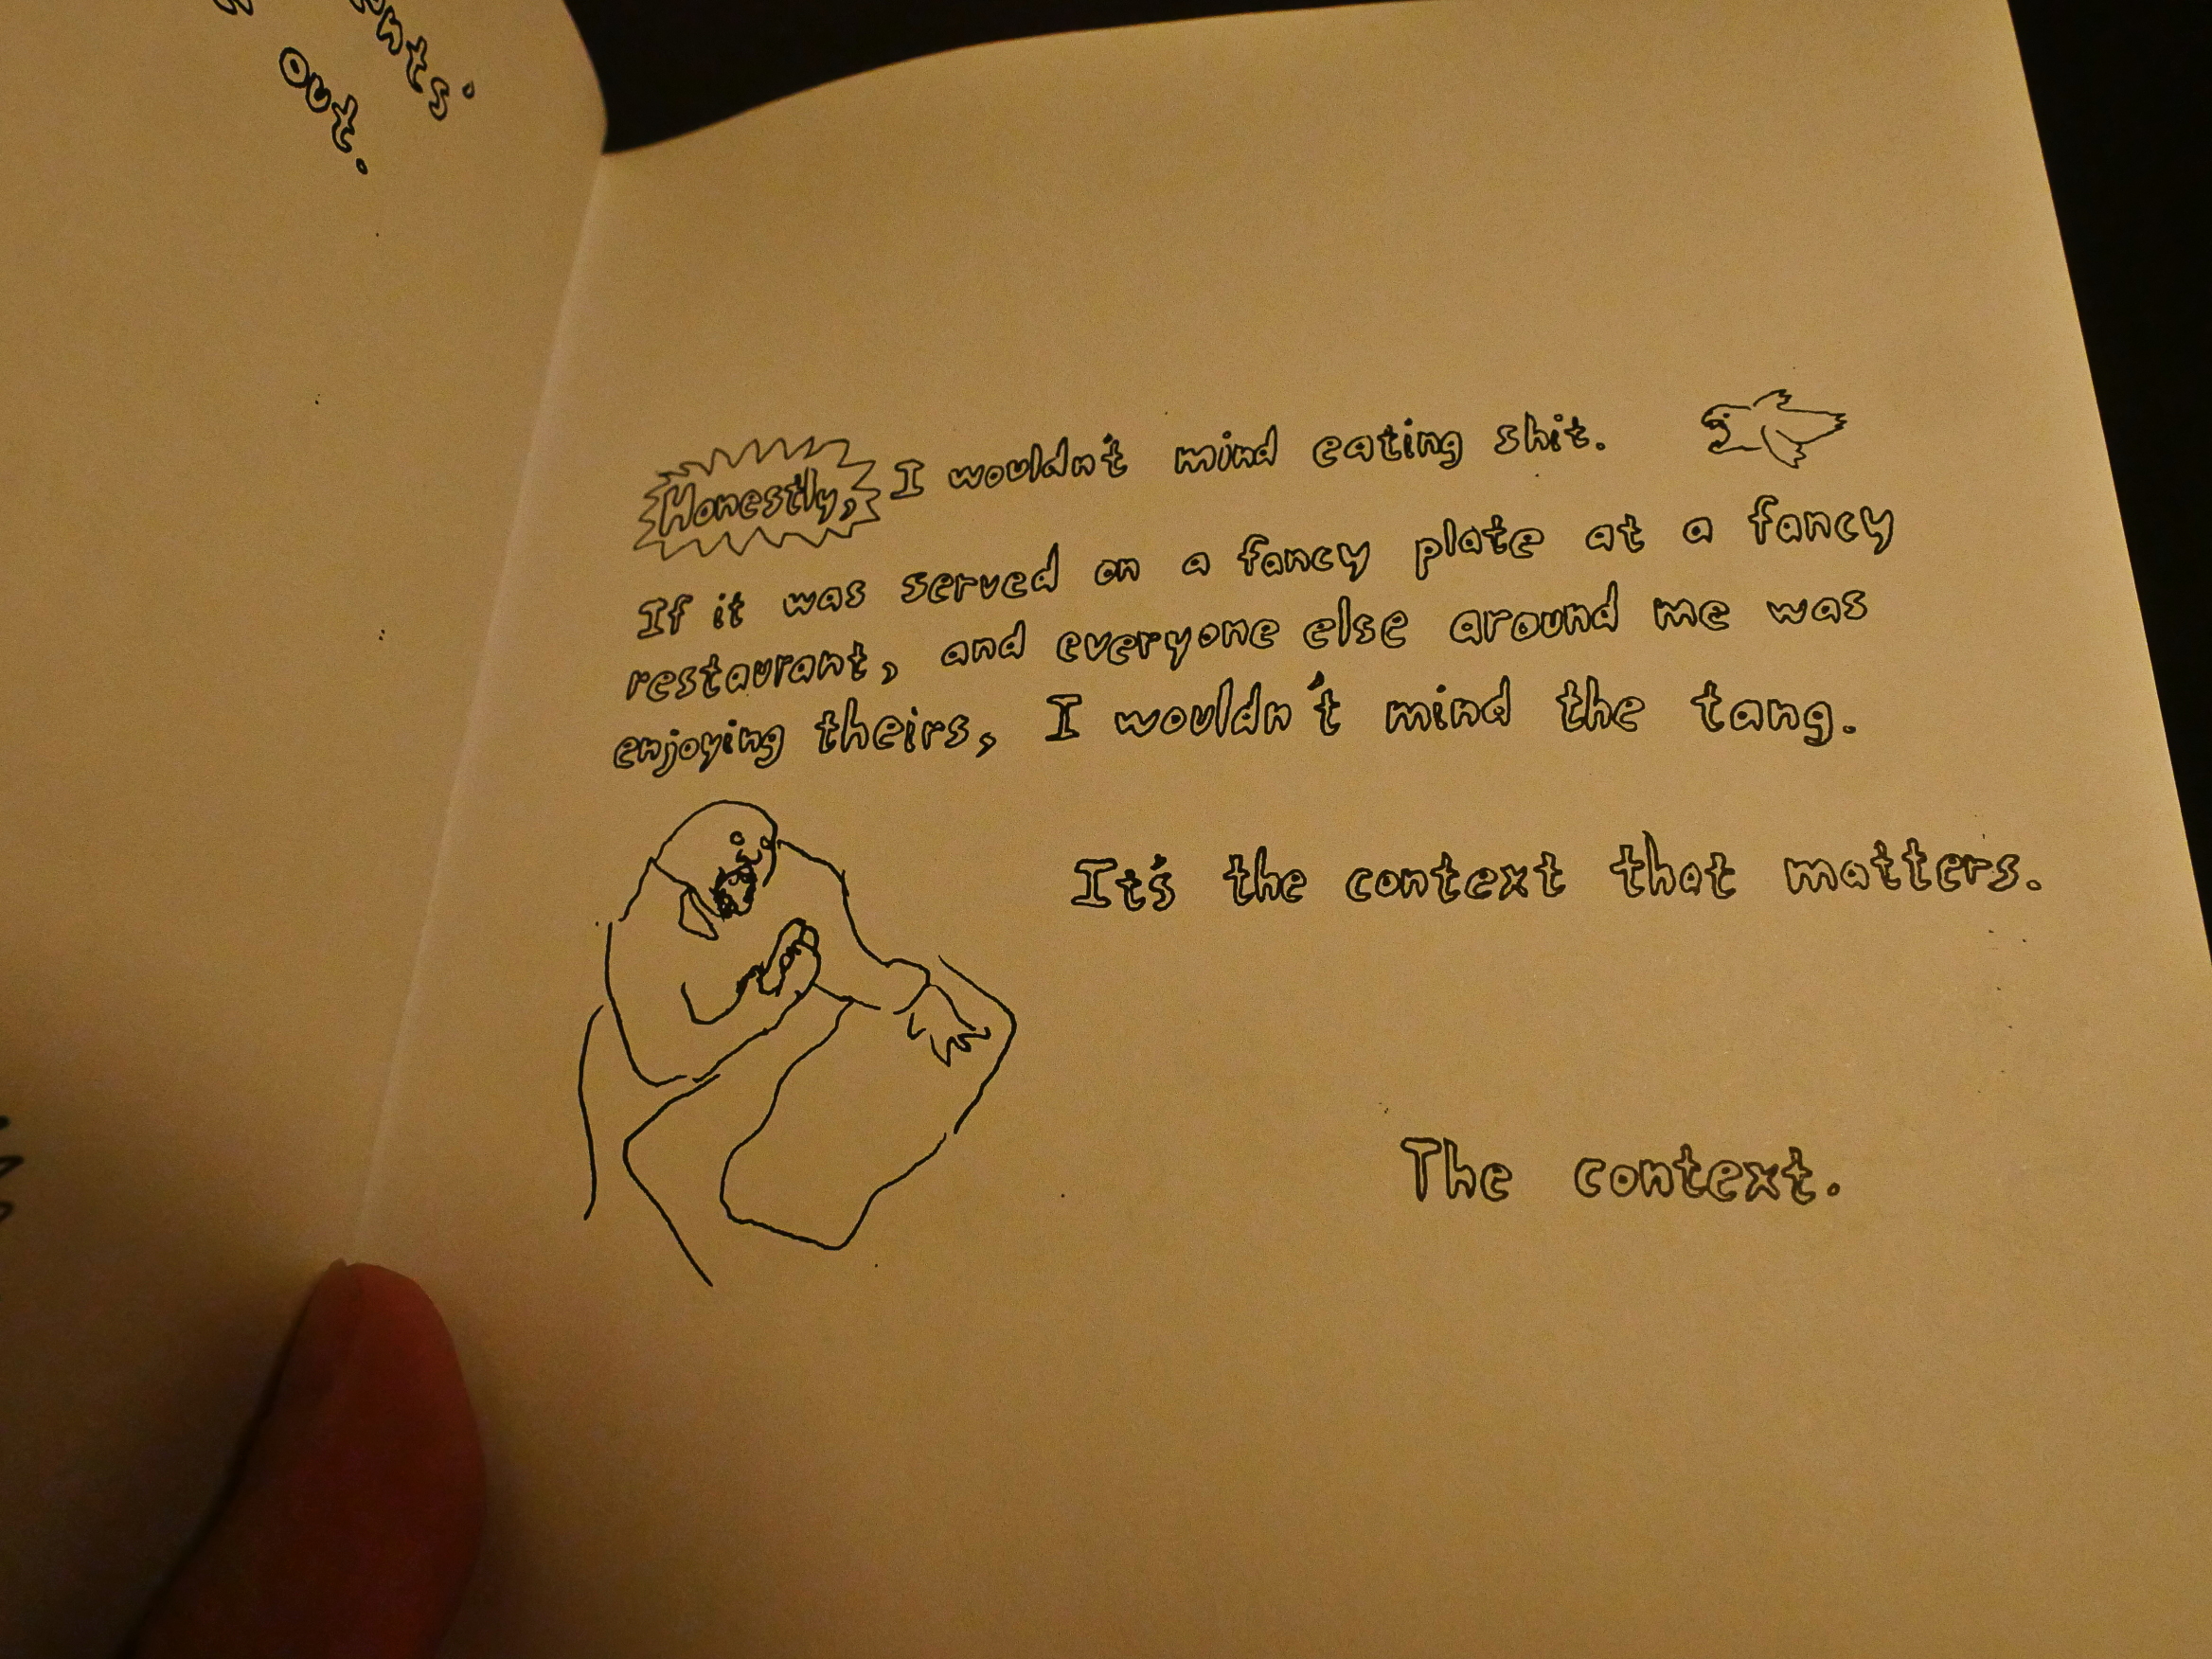 out.
Honestly, I wouldn't mind eating shit.
If it was served on a fancy plate at a fancy
restaurant, and everyone else around me was
enjoying theirs, I wouldn't mind the tang.
It's the context that matters.
The context.